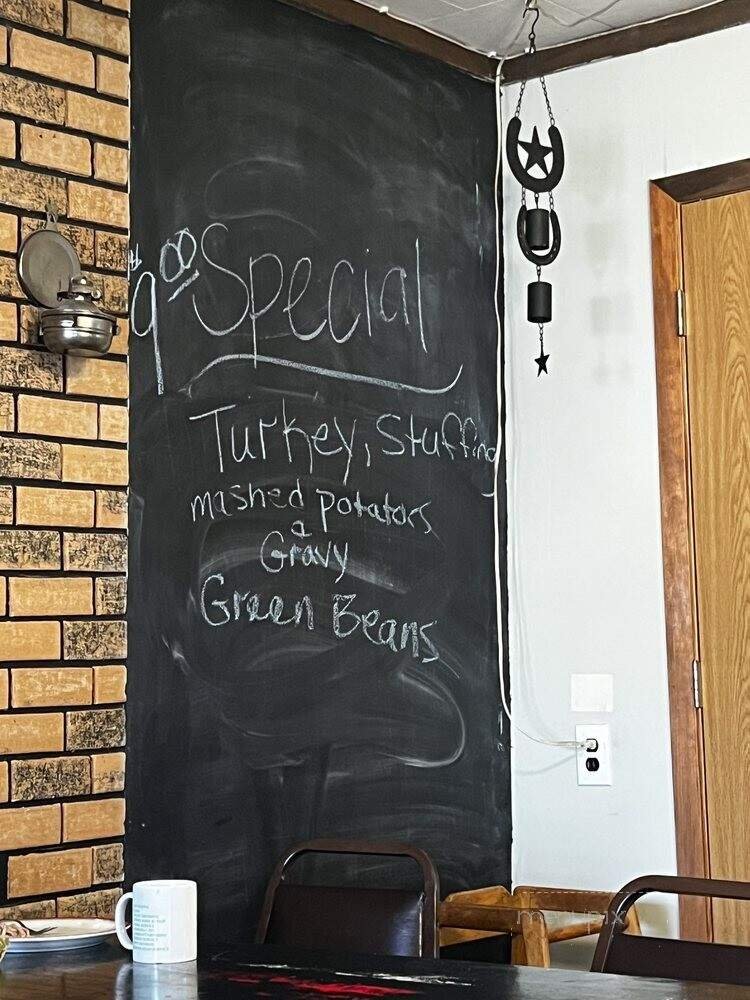 $9.00 Special
Turkey, Stuffing
mashed potatoes
a
Gravy
Green Beans